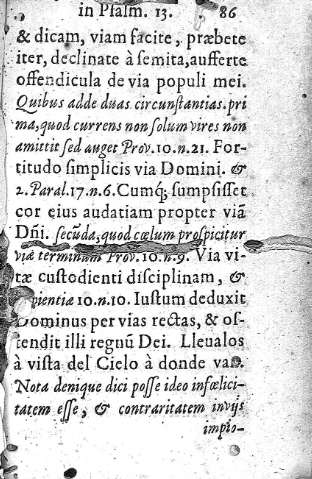 in Psalm. 13. 86
& dicam, viam facite, præbete
iter, declinate à semita, aufferte
offendicula de via populi mei.
Quibus adde duas circunstantias. pri
ma, quod currens non solum vires non
amittit sed auget Prov. 10. n. 21. For-
titudo simplicis via Domini. &
2. Paral. 17. n. 6. Cumq; sumpsisset
cor eius audatiam propter viã
Dñi. secũda, quod cœlum prospicitur
viæ terminum Prov. 10. n. 9. Via vi-
tæ custodienti disciplinam, &
pientiæ 10. n. 10. Iustum deduxit
Dominus per vias rectas, & os-
tendit illi regnũ Dei. Lleualos
à vista del Cielo à donde van.
Nota denique dici posse ideo infœlici-
tatem esse, & contraritatem invijs
impio-